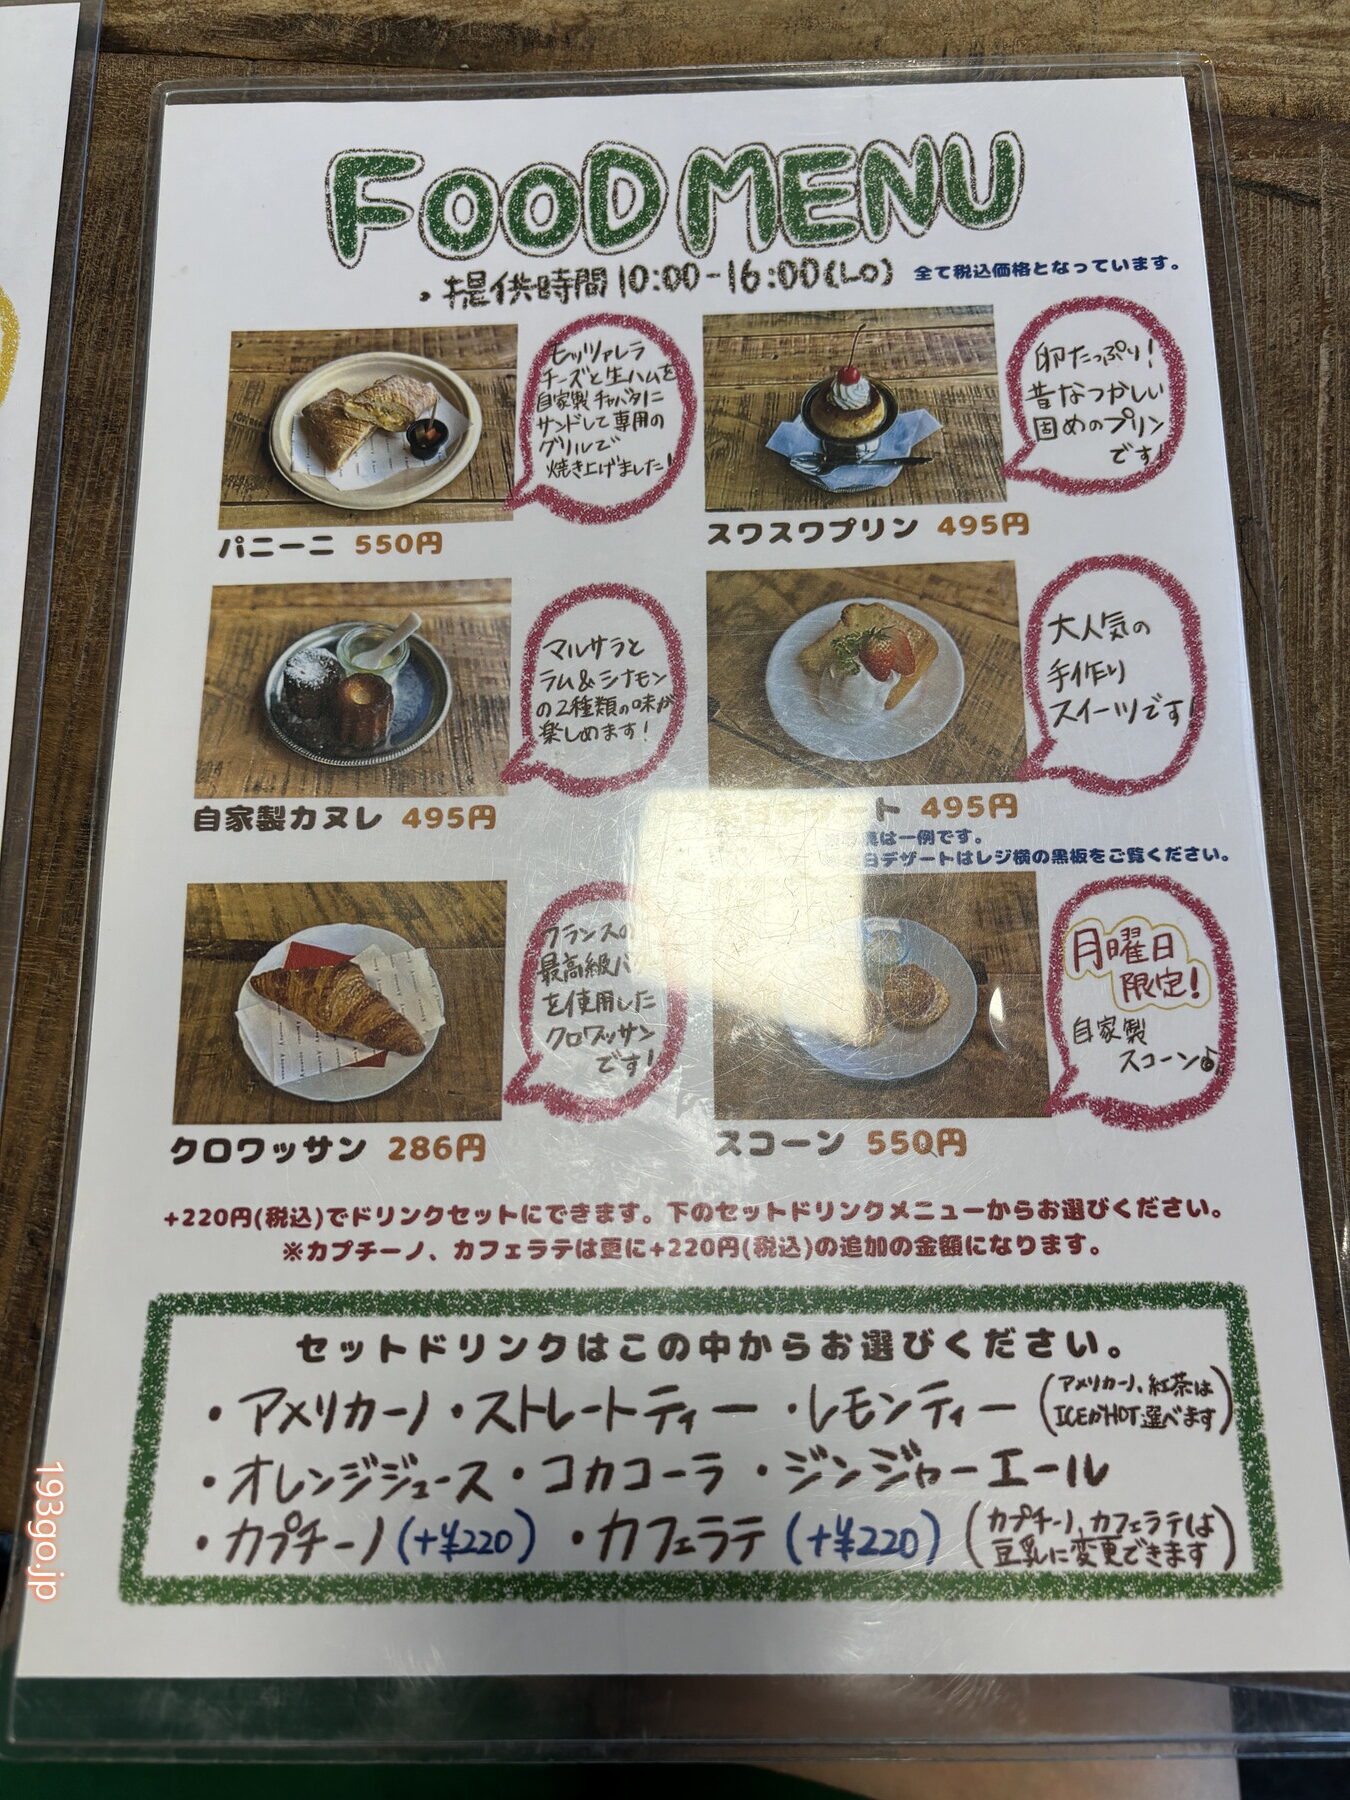 FOOD MENU
・提供時間 10:00-16:00(LO)
全て税込価格となっています。
モッツァレラ
チーズと生ハムを
自家製チャバタに
サンドして専用の
グリルで
焼き上げました!
パニーニ 550円
卵たっぷり!
昔なつかしい
固めのプリン
です!
スワスワプリン 495円
マルサラと
ラム&シナモン
の2種類の味が
楽しめます!
自家製カヌレ 495円
大人気の
手作り
スイーツです!
ート 495円
は一例です。
日デザートはレジ横の黒板をご覧ください。
フランスの
最高級バ
を使用した
クロワッサン
です!
クロワッサン 286円
月曜日
限定!
自家製
スコーン♪
スコーン 550円
+220円(税込)でドリンクセットにできます。下のセットドリンクメニューからお選びください。
※カプチーノ、カフェラテは更に+220円(税込)の追加の金額になります。
セットドリンクはこの中からお選びください。
・アメリカーノ ・ストレートティー ・レモンティー (アメリカーノ、紅茶は
ICEかHOT選べます)
・オレンジジュース ・コカコーラ ・ジンジャーエール
・カプチーノ(+¥220) ・カフェラテ(+¥220) (カプチーノ、カフェラテは
豆乳に変更できます)
193go.jp